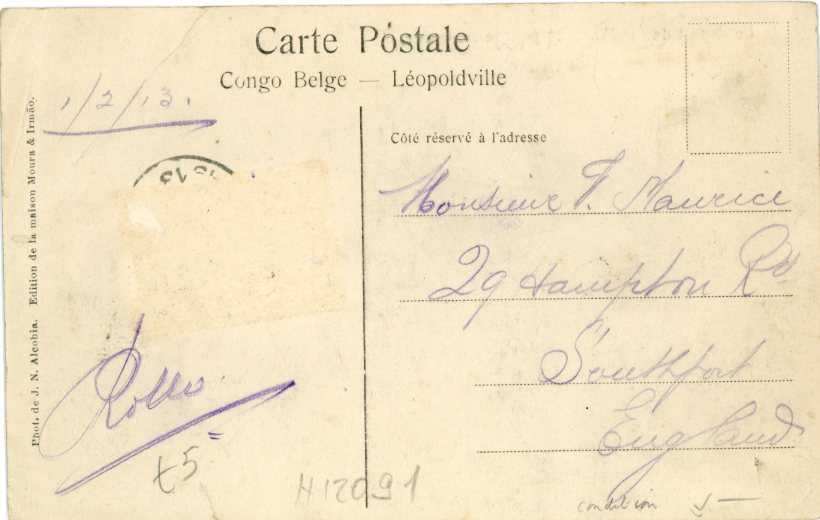 Carte Postale
Congo Belge — Léopoldville
1/2/13.
Côté réservé à l'adresse
Monsieur F. Maurice
29 Hampton Rd
Southport
England
Rollo.
£5=
H12091
condition
Phot. de J. N. Alcobia. Edition de la maison Moura & Irmão.